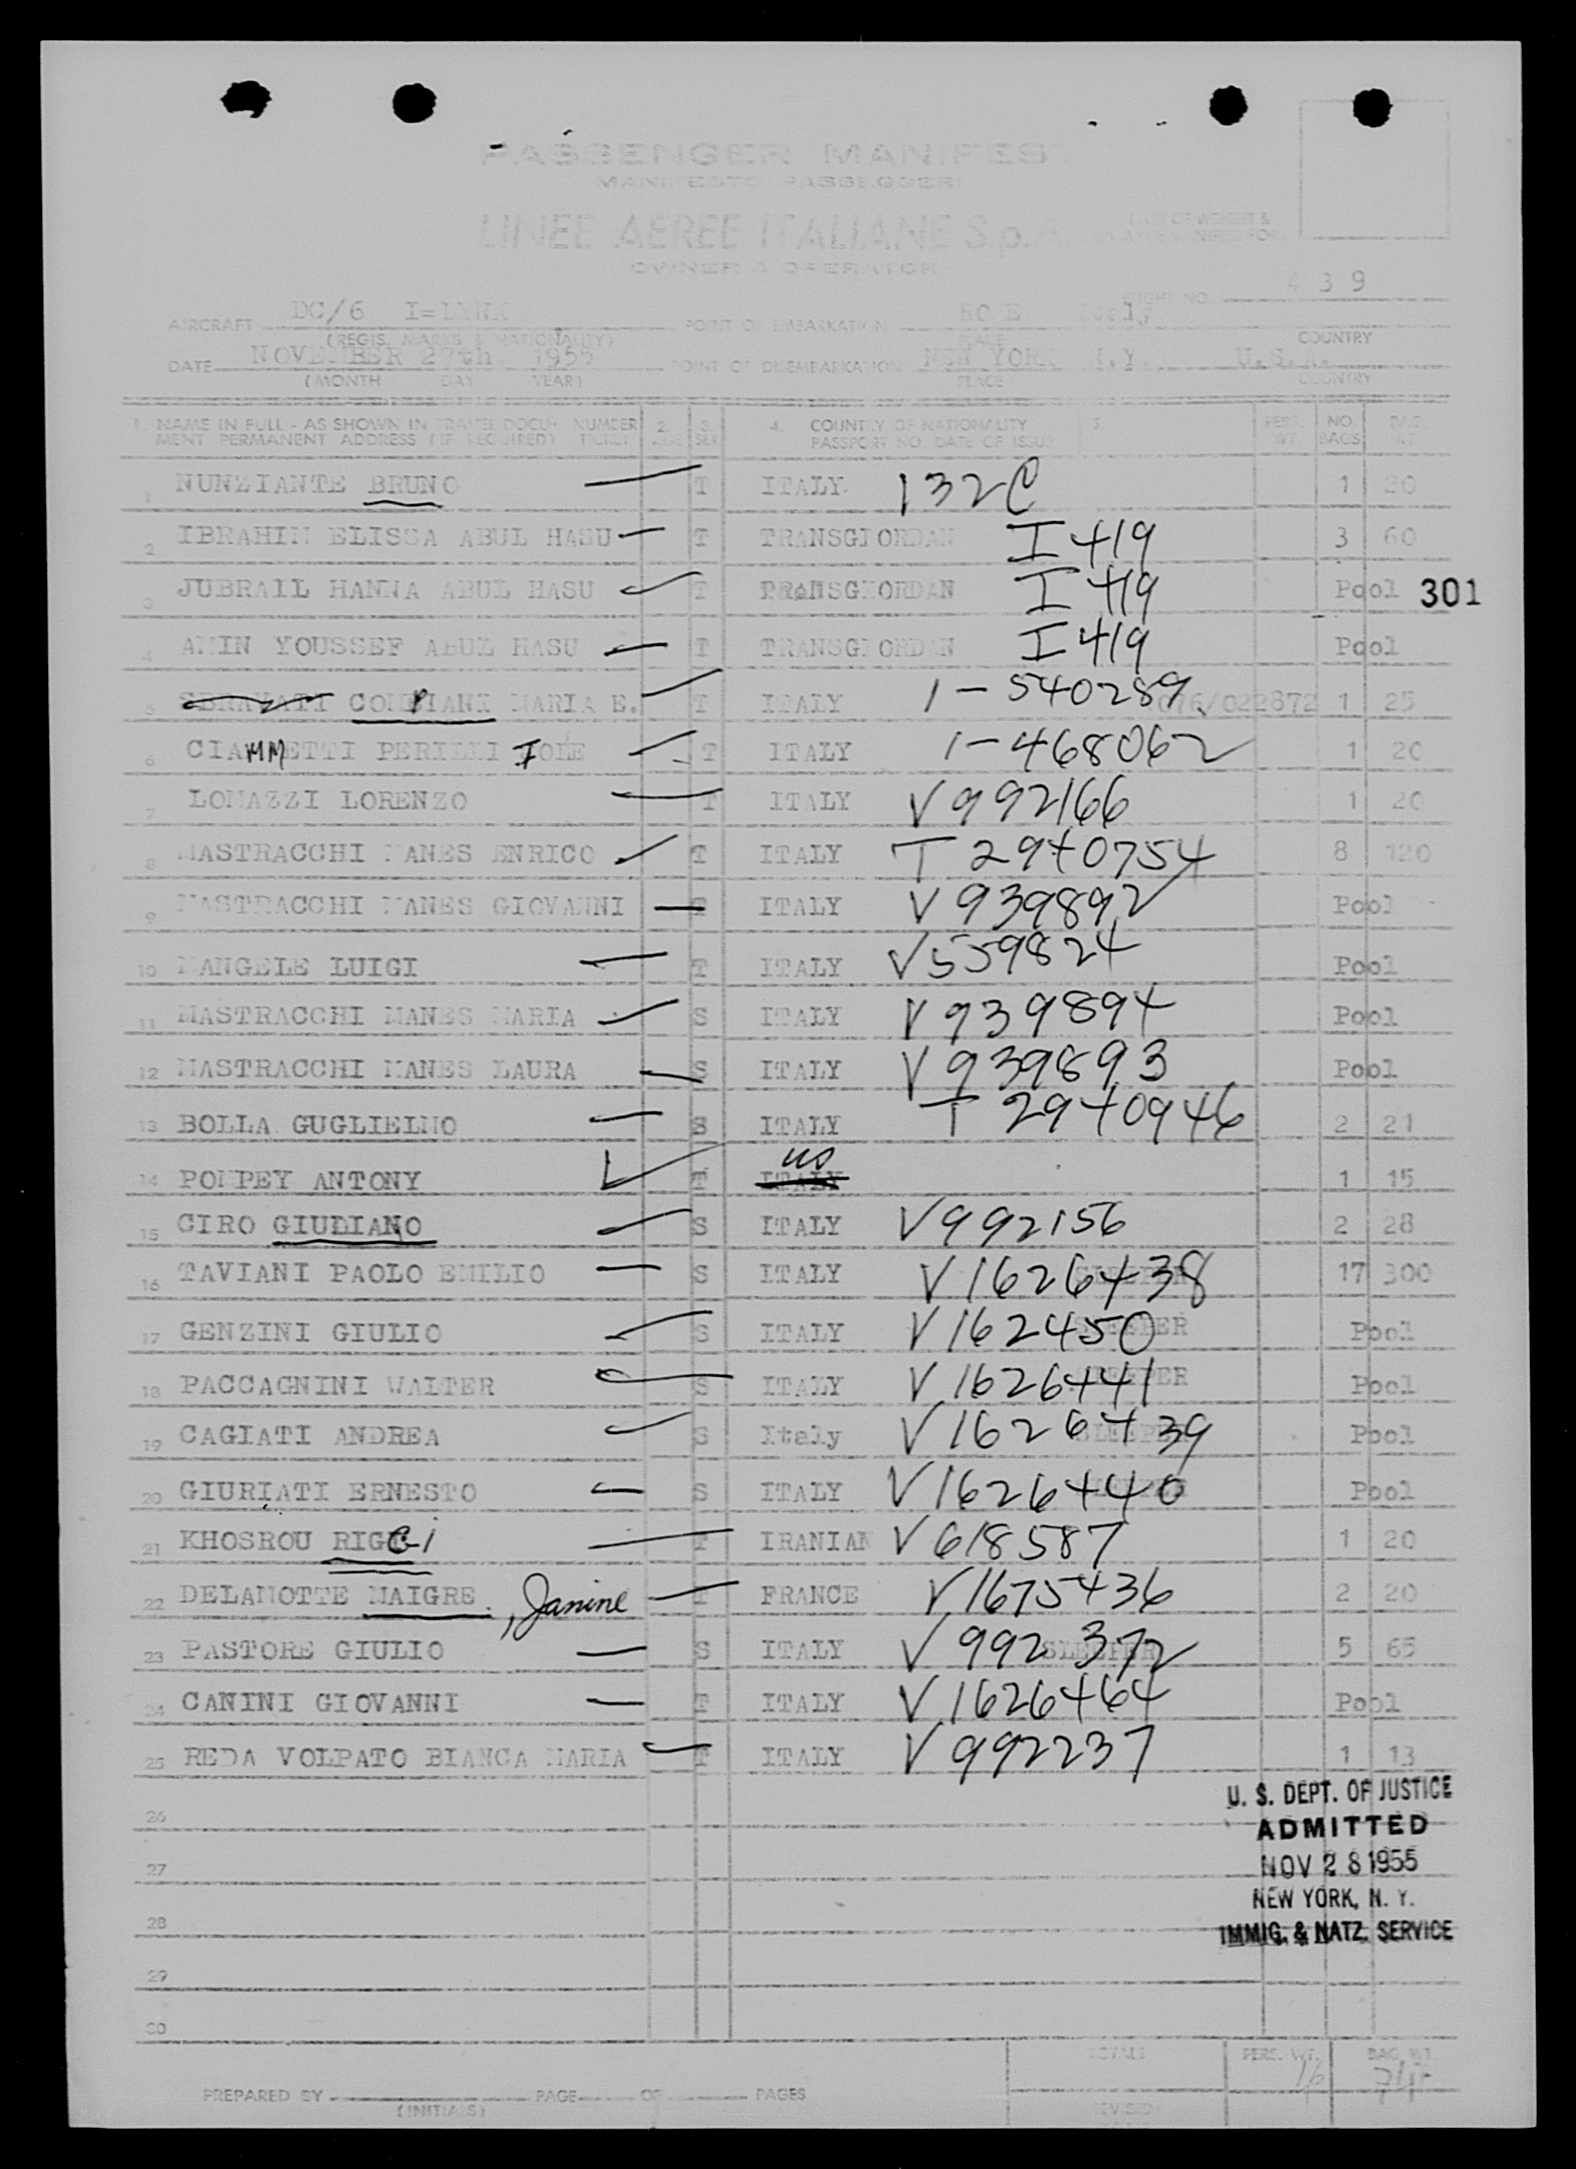 PASSENGER MANIFEST
MANIFESTO PASSEGGERI
LINEE AEREE ITALIANE S.p.A.
OWNER & OPERATOR
FLIGHT NO. 439
AIRCRAFT DC/6 POINT OF EMBARKATION
(REGIS. MARKS & NATIONALITY) PLACE COUNTRY
DATE NOVEMBER 27th 1955 POINT OF DISEMBARKATION NEW YORK N.Y. U.S.A.
(MONTH DAY YEAR) PLACE COUNTRY
1. NAME IN FULL - AS SHOWN IN TRAVEL DOCU- NUMBER 2. 3. 4. COUNTRY OF NATIONALITY 5. PERS. NO. BAG.
MENT PERMANENT ADDRESS (IF REQUIRED) TICKET AGE SEX PASSPORT NO. DATE OF ISSUE WT. BAGS WT.
1 NUNZIANTE BRUNO T ITALY 132C 1 20
2 IBRAHIM ELISSA ABUL HASU T TRANSGIORDAN I 419 3 60
3 JUBRAIL HANNA ABUL HASU T TRANSGIORDAN I 419 Pool 301
4 AMIN YOUSSEF ABUL HASU T TRANSGIORDAN I 419 Pool
5 MARIA E. T ITALY 1-540289 076/022872 1 25
6 CIAMMETTI PERILLI IOLE T ITALY 1-468062 1 20
7 LOMAZZI LORENZO T ITALY V992166 1 20
8 MASTRACCHI MANES ENRICO T ITALY T 2940754 8 120
9 MASTRACCHI MANES GIOVANNI T ITALY V 939892 Pool
10 MANGELE LUIGI T ITALY V559824 Pool
11 MASTRACCHI MANES MARIA S ITALY V 939894 Pool
12 MASTRACCHI MANES LAURA S ITALY V 939893 Pool
13 BOLLA GUGLIELMO S ITALY T 2940946 2 21
14 POMPEY ANTONY T ITALY US 1 15
15 CIRO GIUDIANO S ITALY V992156 2 28
16 TAVIANI PAOLO EMILIO S ITALY SLEEPER V1626438 17 300
17 GENZINI GIULIO S ITALY SLEEPER V162450 Pool
18 PACCAGNINI WALTER S ITALY SLEEPER V 1626441 Pool
19 CAGIATI ANDREA S Italy SLEEPER V 1626439 Pool
20 GIURIATI ERNESTO S ITALY SLEEPER V 1626440 Pool
21 KHOSROU T IRANIAN V 618587 1 20
22 DELAMOTTE MAIGRE, Janine T FRANCE V1675436 2 20
23 PASTORE GIULIO S ITALY SLEEPER V 992372 5 65
24 CANINI GIOVANNI T ITALY V 1626464 Pool
25 REDA VOLPATO BIANCA MARIA T ITALY V 992237 1 13
U. S. DEPT. OF JUSTICE
26
ADMITTED
27
NOV 28 1955
NEW YORK, N. Y.
28
IMMIG. & NATZ. SERVICE
29
30
TOTALS PERS. WT. BAG. WT.
PREPARED BY PAGE OF PAGES
(INITIALS) REVISED